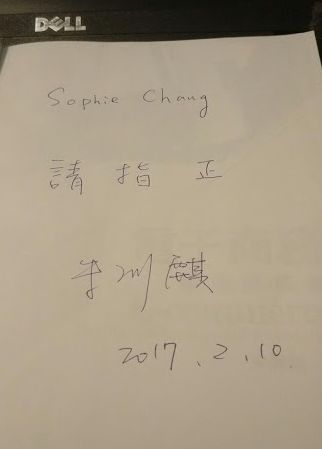 DELL
Sophie Chang
請指正
牛川麒
2017.2.10